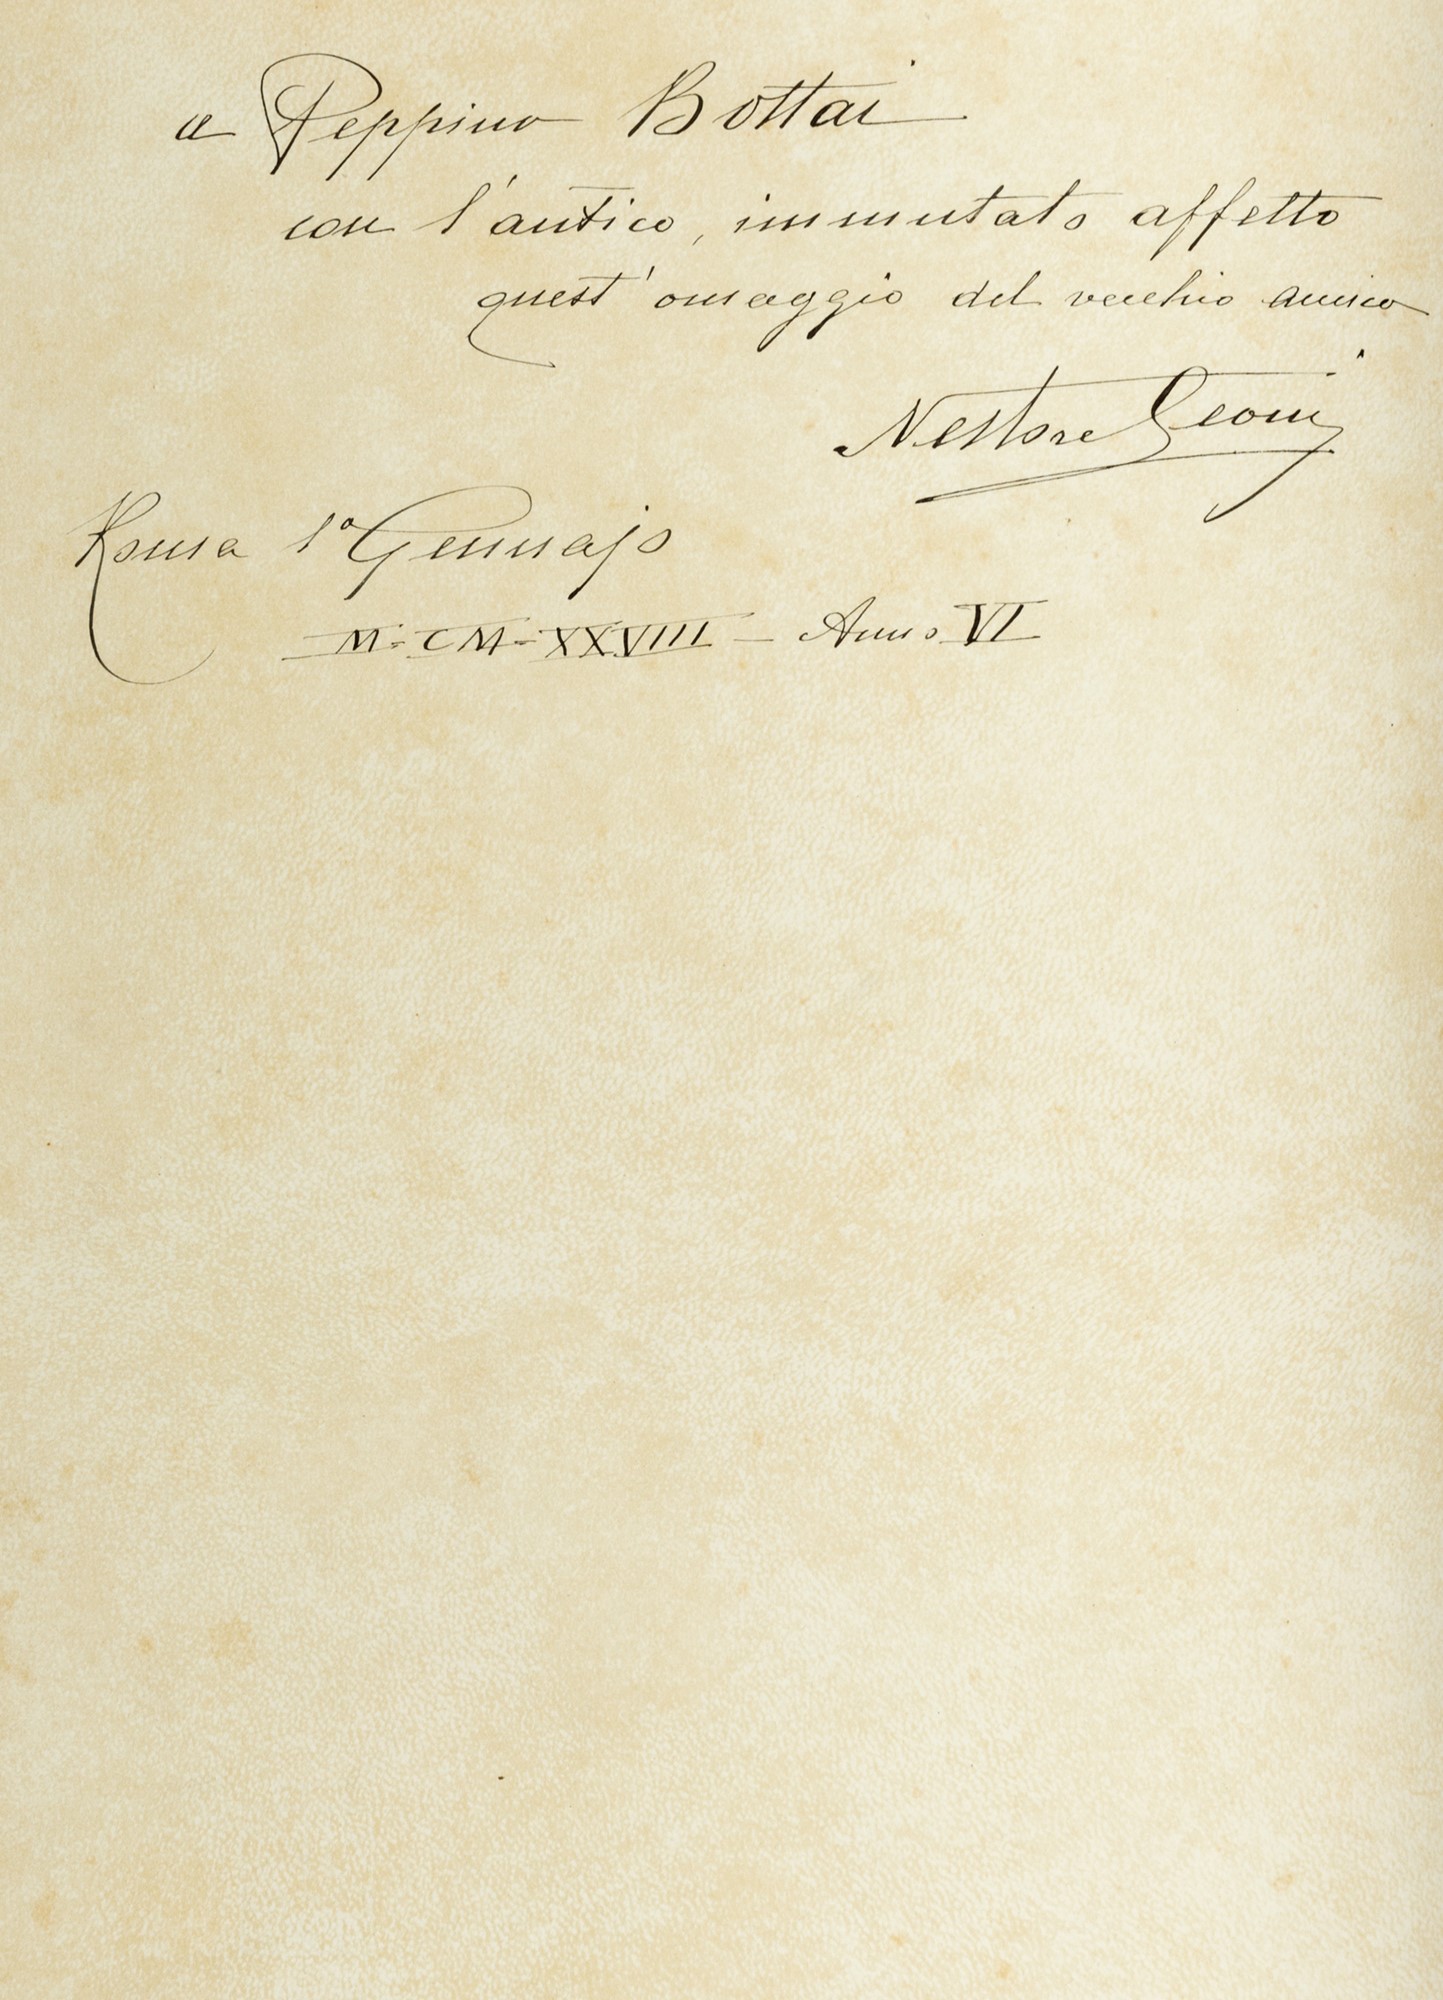 a Peppino Bottai
con l'antico, immutato affetto
quest'omaggio del vecchio amico
Nestore Leoni
Roma 1º Gennajo
M-CM-XXVIII - Anno VI